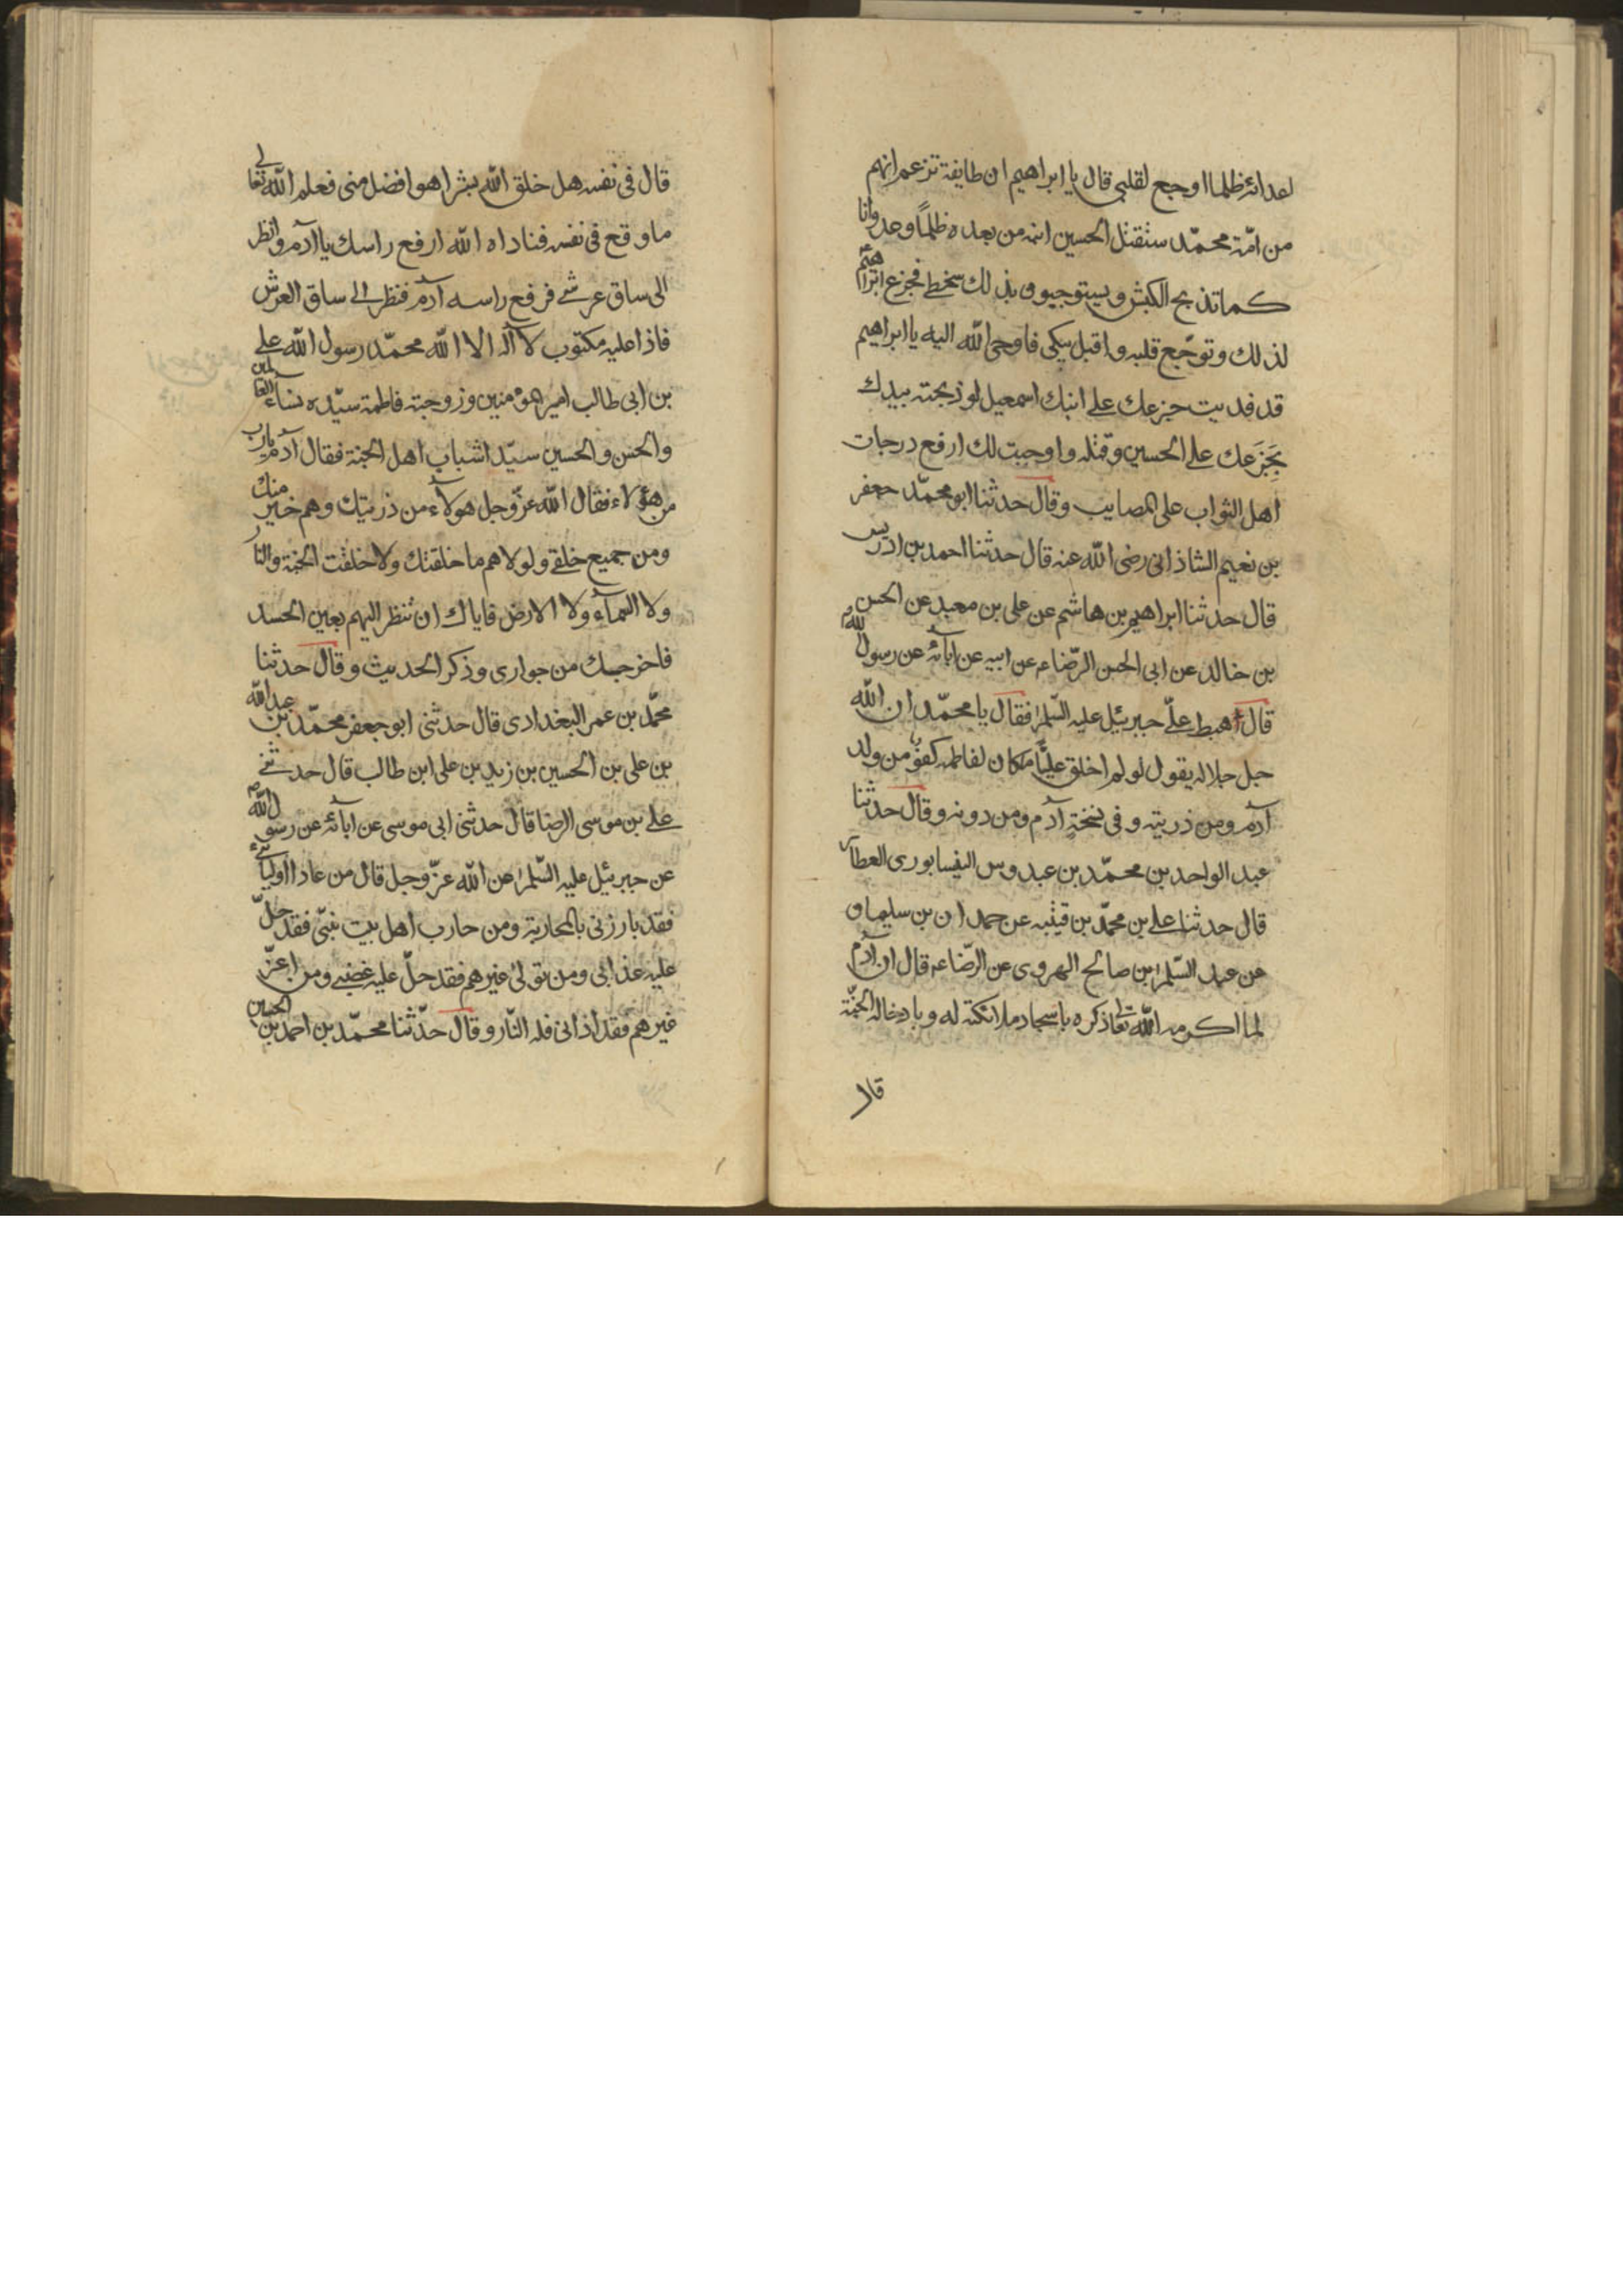 اعدائه ظلما اوجع لقلبى قال يا ابراهيم ان طايفة تزعم انهم
من امّة محمّد ستقتل الحسين ابنه من بعده ظلمًا وعدوانا
كما تذبح الكبش ويستوجبون بذلك سخطى فجزع ابراهيم
لذلك وتوجّع قلبه واقبل يبكى فاوحى اللّه اليه يا ابراهيم
قد فديت جزعك على ابنك اسمعيل لو ذبحته بيدك
بجَزَعك على الحسين وقتله واوجبت لك ارفع درجات
اهل الثواب على المصايب وقال حدثنا ابو محمّد جعفر
بن نعيم الشاذانى رضى اللّه عنه قال حدثنا احمد بن ادريس
قال حدثنا ابراهيم بن هاشم عن على بن معبد عن الحسن
بن خالد عن ابى الحسن الرّضا ع عن ابيه عن ابآئه عن رسول اللّه ص
قال اهبط علىّ جبرئيل عليه السّلم فقال يا محمّد ان اللّه
جل جلاله يقول لو لم اخلق عليًّا ما كان لفاطمه كفؤ من ولد
آدم ومن ذريته وفى نسخة آدم ومن دونه وقال حدثنا
عبد الواحد بن محمّد بن عبدوس النيسابورى العطار
قال حدثنا على بن محمّد بن قيتبه عن حمدان بن سليمان
عن عبد السّلم بن صالح الهروى عن الرّضا ع قال ان آدم
لما اكرمه اللّه تعالى ذكره باسجاد ملائكته له وبادخاله الجنّة
قال
قال فى نفسه هل خلق اللّه بشرا هو افضل منى فعلم اللّه تعالى
ما وقع فى نفسه فناداه اللّه ارفع راسك يا آدم وانظر
الى ساق عرشى فرفع راسه آدم فنظر الى ساق العرش
فاذا عليه مكتوب لا آله الا اللّه محمّد رسول اللّه على
بن ابى طالب امير المؤمنين وزوجته فاطمة سيّده نسآء العالمين
والحسن والحسين سيّدا شباب اهل الجنة فقال آدم يارب
من هؤلاء فقال اللّه عزّ وجل هولآء من ذريتك وهم خير منك
ومن جميع خلقى ولولاهم ما خلقتك ولا خلقت الجنة والنار
ولا السمآء ولا الارض فاياك ان تنظر اليهم بعين الحسد
فاخرجك من جوارى وذكر الحديث وقال حدثنا
محمّد بن عمر البغدادى قال حدثنى ابو جعفر محمّد بن عبد اللّه
بن على بن الحسين بن زيد بن على ابن طالب قال حدثنى
على بن موسى الرضا قال حدثنى ابى موسى عن ابآئه عن رسول اللّه ص
عن جبرئيل عليه السّلم عن اللّه عزّ وجل قال من عادا اوليائى
فقد بارزنى بالمحاربة ومن حارب اهل بيت نبيّى فقد حلّ
عليه عذابى ومن تولى غيرهم فقد حلّ عليه غضبى ومن اعزّ
غيرهم فقد اذانى فله النّار وقال حدّثنا محمّد بن احمد بن الحسين